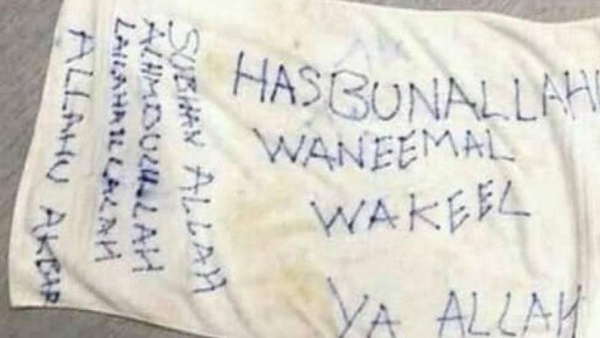 HASBUNALLAH
WANEEMAL
WAKEEL
YA ALLAH
SUBHAN ALLAH
ALHMDULILLAH
LAILAHAILLALAH
ALLAHU AKBAR